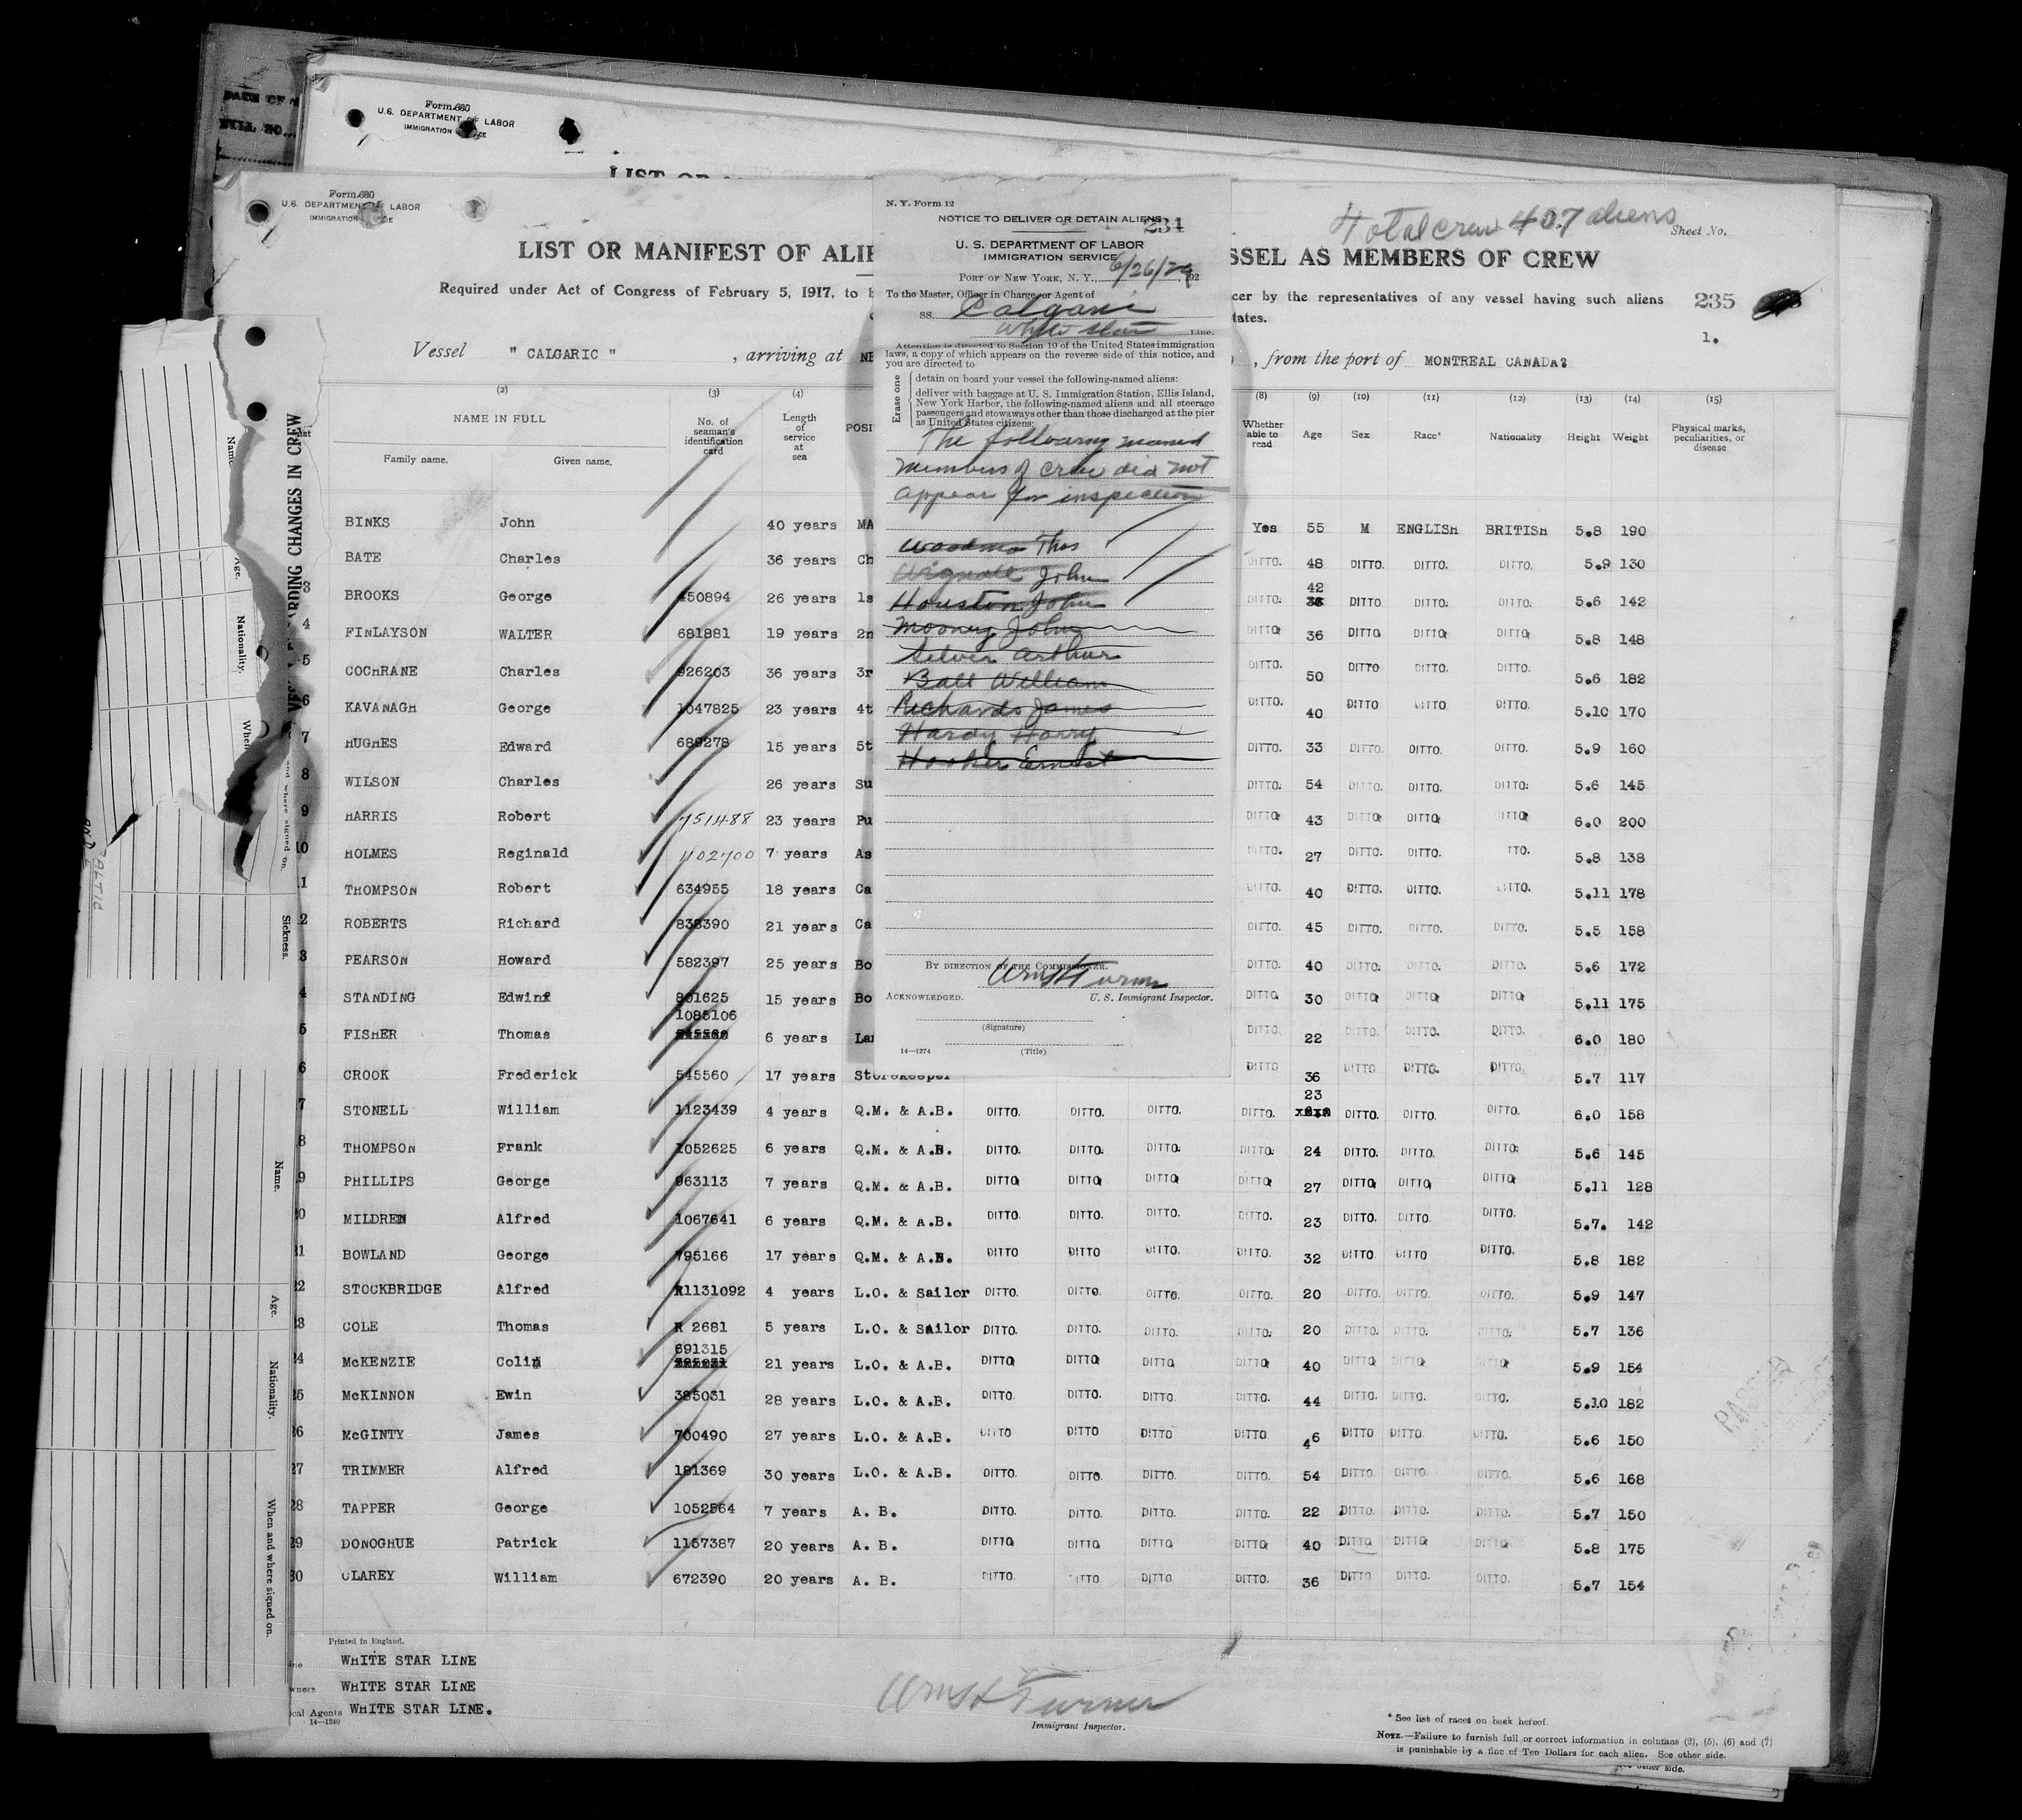 Form 680
U.S. DEPARTMENT OF LABOR
IMMIGRATION
LIST OR
Form 680
U.S. DEPARTMENT OF LABOR
IMMIGRATION
Total crew 407 aliens
Sheet No.
LIST OR MANIFEST OF ALIE
SSEL AS MEMBERS OF CREW
Required under Act of Congress of February 5, 1917, to
cer by the representatives of any vessel having such aliens
tates.
235
1.
Vessel " CALGARIC " , arriving at NE
, from the port of MONTREAL CANADA?
N. Y. Form 12
NOTICE TO DELIVER OR DETAIN ALIENS
234
U. S. DEPARTMENT OF LABOR
IMMIGRATION SERVICE
PORT OF NEW YORK, N. Y., 6/26/29, 192
To the Master, Officer in Charge, or Agent of
SS. Calgaric
White Star Line.
Attention is directed to Section 10 of the United States immigration
laws, a copy of which appears on the reverse side of this notice, and
you are directed to
Erase one
detain on board your vessel the following-named aliens:
deliver with baggage at U. S. Immigration Station, Ellis Island,
New York Harbor, the following-named aliens and all steerage
passengers and stowaways other than those discharged at the pier
as United States citizens:
The following named
members of crew did not
appear for inspection
Woodma Thos
Wignall John
Houston John
Mooney John
Silver Arthur
Ball William
Richards James
Hardy Harry
Hooker Ernest
BY DIRECTION OF THE COMMISSIONER.
Wm H Turner
U. S. Immigrant Inspector.
ACKNOWLEDGED.
(Signature)
(Title)
14—1274
(2) (3) (4) (8) (9) (10) (11) (12) (13) (14) (15)
NAME IN FULL
Family name. Given name.
No. of seaman's identification card
Length of service at sea
POSI
Whether able to read
Age
Sex
Race*
Nationality
Height
Weight
Physical marks, peculiarities, or disease
BINKS John 40 years MA Yes 55 M ENGLISH BRITISH 5.8 190
BATE Charles 36 years Ch DITTO. 48 DITTO. DITTO. DITTO. 5.9 130
3 BROOKS George 450894 26 years 1s DITTO. 42 36 DITTO DITTO. DITTO. 5.6 142
4 FINLAYSON WALTER 681881 19 years 2n DITTO 36 DITTO DITTO DITTO 5.8 148
5 COCHRANE Charles 926203 36 years 3r DITTO. 50 DITTO DITTO. DITTO. 5.6 182
6 KAVANAGH George 1047825 23 years 4t DITTO. 40 DITTO DITTO DITTO. 5.10 170
7 HUGHES Edward 689278 15 years 5t DITTO. 33 DITTO. DITTO. DITTO. 5.9 160
8 WILSON Charles 26 years Su DITTO. 54 DITTO. DITTO. DITTO. 5.6 145
9 HARRIS Robert 751488 23 years Pu DITTO 43 DITTO DITTO DITTO 6.0 200
10 HOLMES Reginald 1102700 7 years As DITTO. 27 DITTO. DITTO. TTO. 5.8 138
1 THOMPSON Robert 634955 18 years Ca DITTO. 40 DITTO. DITTO. DITTO. 5.11 178
2 ROBERTS Richard 838390 21 years Ca DITTO. 45 DITTO. DITTO. DITTO. 5.5 158
3 PEARSON Howard 582397 25 years Bo DITTO. 40 DITTO. DITTO. DITTO. 5.6 172
4 STANDING Edwin 801625 15 years Bo DITTO 30 DITTO DITTO DITTO 5.11 175
5 FISHER Thomas 1085106 6 years La DITTO. 22 DITTO. DITTO. DITTO. 6.0 180
6 CROOK Frederick 545560 17 years Storekeeper DITTO 36 DITTO DITTO. DITTO. 5.7 117
7 STONELL William 1123439 4 years Q.M. & A.B. DITTO. DITTO. DITTO. DITTO. 23 DITTO. DITTO. DITTO. 6.0 158
8 THOMPSON Frank 1052625 6 years Q.M. & A.B. DITTO. DITTO. DITTO. DITTO. 24 DITTO. DITTO. DITTO. 5.6 145
9 PHILLIPS George 963113 7 years Q.M. & A.B. DITTO DITTO DITTO DITTO 27 DITTO DITTO DITTO 5.11 128
20 MILDREN Alfred 1067641 6 years Q.M. & A.B. DITTO. DITTO. DITTO. DITTO. 23 DITTO. DITTO. DITTO. 5.7. 142
21 BOWLAND George 795166 17 years Q.M. & A.B. DITTO DITTO DITTO. DITTO. 32 DITTO DITTO DITTO. 5.8 182
22 STOCKBRIDGE Alfred R1131092 4 years L.O. & Sailor DITTO. DITTO. DITTO. DITTO. 20 DITTO. DITTO. DITTO. 5.9 147
23 COLE Thomas R 2681 5 years L.O. & Sailor DITTO. DITTO. DITTO. DITTO. 20 DITTO. DITTO. DITTO. 5.7 136
24 McKENZIE Colin 691315 21 years L.O. & A.B. DITTO DITTO DITTO DITTO 40 DITTO DITTO DITTO 5.9 154
25 McKINNON Ewin 385031 28 years L.O. & A.B. DITTO. DITTO. DITTO. DITTO. 44 DITTO. DITTO. DITTO. 5.10 182
26 McGINTY James 700490 27 years L.O. & A.B. DITTO DITTO DITTO DITTO 46 DITTO DITTO DITTO. 5.6 150
27 TRIMMER Alfred 181369 30 years L.O. & A.B. DITTO. DITTO. DITTO. DITTO. 54 DITTO. DITTO. DITTO. 5.6 168
28 TAPPER George 1052564 7 years A. B. DITTO. DITTO. DITTO. DITTO. 22 DITTO. DITTO. DITTO. 5.7 150
29 DONOGHUE Patrick 1157387 20 years A. B. DITTO DITTO DITTO DITTO 40 DITTO DITTO DITTO 5.8 175
30 CLAREY William 672390 20 years A. B. DITTO. DITTO. DITTO. DITTO. 36 DITTO DITTO. DITTO. 5.7 154
Printed in England.
WHITE STAR LINE
WHITE STAR LINE
cal Agents WHITE STAR LINE.
14—1240
Wm H Turner
Immigrant Inspector.
* See list of races on back hereof.
NOTE.—Failure to furnish full or correct information in columns (2), (5), (6) and (7)
is punishable by a fine of Ten Dollars for each alien. See other side.
other side.
ARDING CHANGES IN CREW
Name.
Age.
Nationality.
When
and where signed on.
Sickness.
Name.
Age.
Nationality.
When and where signed on.
BALTIC
PASSED